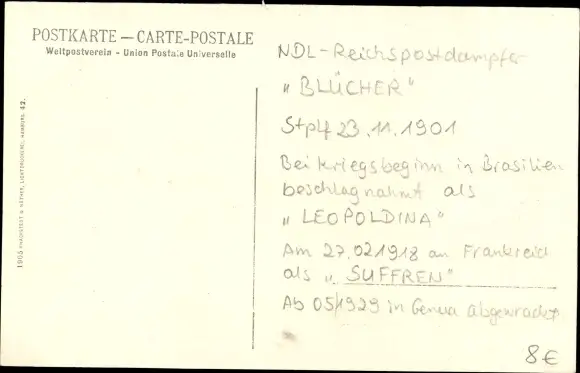 POSTKARTE — CARTE-POSTALE
Weltpostverein - Union Postale Universelle
NDL-Reichspostdampfer
„BLÜCHER"
Stplf 23.11.1901
Bei kriegsbeginn in Brasilien
beschlagnahmt als
„LEOPOLDINA"
Am 27.02.1918 an Frankreich
als „SUFFREN"
Ab 05/1929 in Genua abgewrackt
8€
1903 KNACKSTEDT & NÄTHER, LICHTDRUCKEREI, HAMBURG. 42.